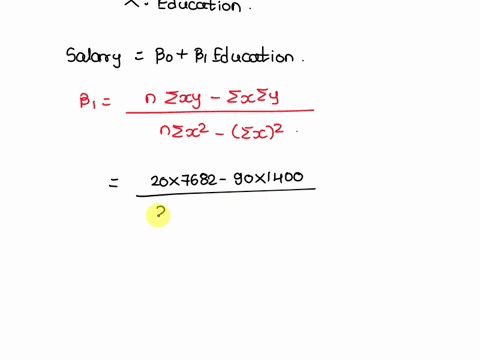 X: Education.
Salary = β0 + β1 Education.
β1 = n Σxy - Σx Σy
n Σx² - (Σx)².
= 20×7682 - 90×1400
2